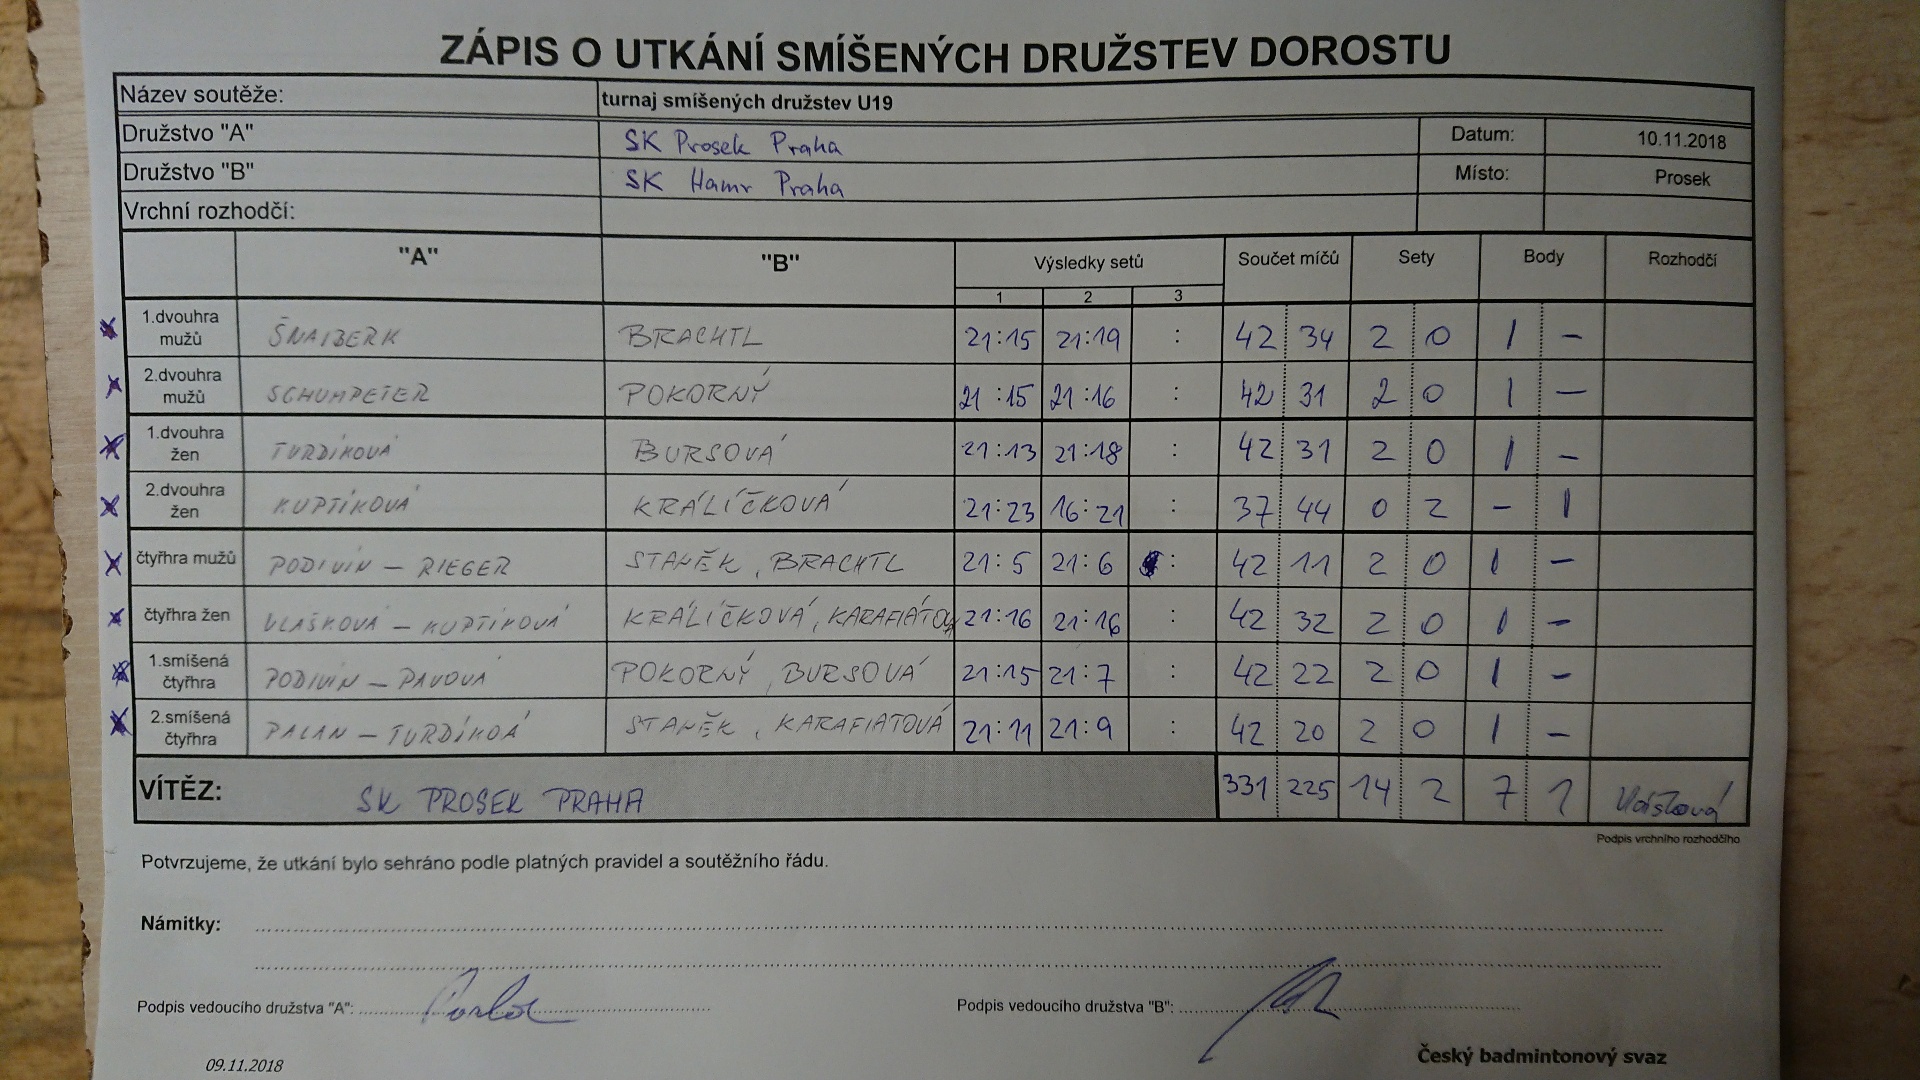 ZÁPIS O UTKÁNÍ SMÍŠENÝCH DRUŽSTEV DOROSTU
Název soutěže: turnaj smíšených družstev U19
Družstvo "A" SK Prosek Praha Datum: 10.11.2018
Družstvo "B" SK Hamr Praha Místo: Prosek
Vrchní rozhodčí:
"A" "B" Výsledky setů Součet míčů Sety Body Rozhodčí
1 2 3
1.dvouhra mužů ŠNAIBERK BRACHTL 21:15 21:19 : 42 34 2 0 1 -
2.dvouhra mužů SCHUMPETER POKORNÝ 21:15 21:16 : 42 31 2 0 1 -
1.dvouhra žen TURDÍKOVÁ BURSOVÁ 21:13 21:18 : 42 31 2 0 1 -
2.dvouhra žen KUPTÍKOVÁ KRÁLÍČKOVÁ 21:23 16:21 : 37 44 0 2 - 1
čtyřhra mužů PODIVÍN - RIEGER STANĚK, BRACHTL 21:5 21:6 : 42 11 2 0 1 -
čtyřhra žen VLAŠKOVÁ - KUPTÍKOVÁ KRÁLÍČKOVÁ, 21:16 21:16 : 42 32 2 0 1 -
1.smíšená čtyřhra PODIVÍN - PAVOVÁ POKORNÝ, BURSOVÁ 21:15 21:7 : 42 22 2 0 1 -
2.smíšená čtyřhra PALAN - TURDÍKOÁ STANĚK, KARAFIATOVÁ 21:11 21:9 : 42 20 2 0 1 -
VÍTĚZ: SK PROSEK PRAHA 331 225 14 2 7 1
Podpis vrchního rozhodčího
Potvrzujeme, že utkání bylo sehráno podle platných pravidel a soutěžního řádu.
Námitky:
Podpis vedoucího družstva "A": Podpis vedoucího družstva "B":
09.11.2018 Český badmintonový svaz